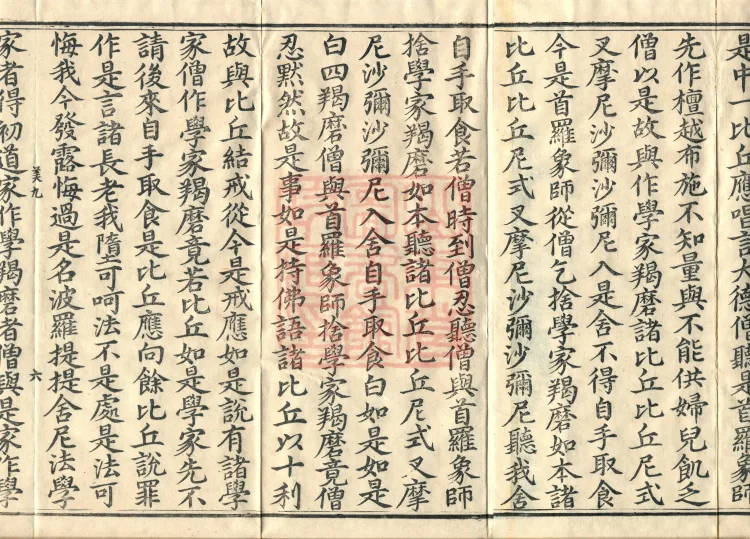 是中一比丘應唱言大德僧聽是首羅象師
先作檀越布施不知量與不能供婦兒飢乏
僧以是故與作學家羯磨諸比丘比丘尼式
叉摩尼沙彌沙彌尼入是舍不得自手取食
今是首羅象師從僧乞捨學家羯磨如本諸
比丘比丘尼式叉摩尼沙彌沙彌尼聽我舍
自手取食若僧時到僧忍聽僧與首羅象師
捨學家羯磨如本聽諸比丘比丘尼式叉摩
尼沙彌沙彌尼入舍自手取食白如是如是
白四羯磨僧與首羅象師捨學家羯磨竟僧
忍默然故是事如是持佛語諸比丘以十利
故與比丘結戒從今是戒應如是說有諸學
家僧作學家羯磨竟若比丘如是學家先不
請後來自手取食是比丘應向餘比丘說罪
作是言諸長老我墮可呵法不是處是法可
悔我今發露悔過是名波羅提提舍尼法學
九 六
家者得初道家作學家羯磨者僧與是家作學